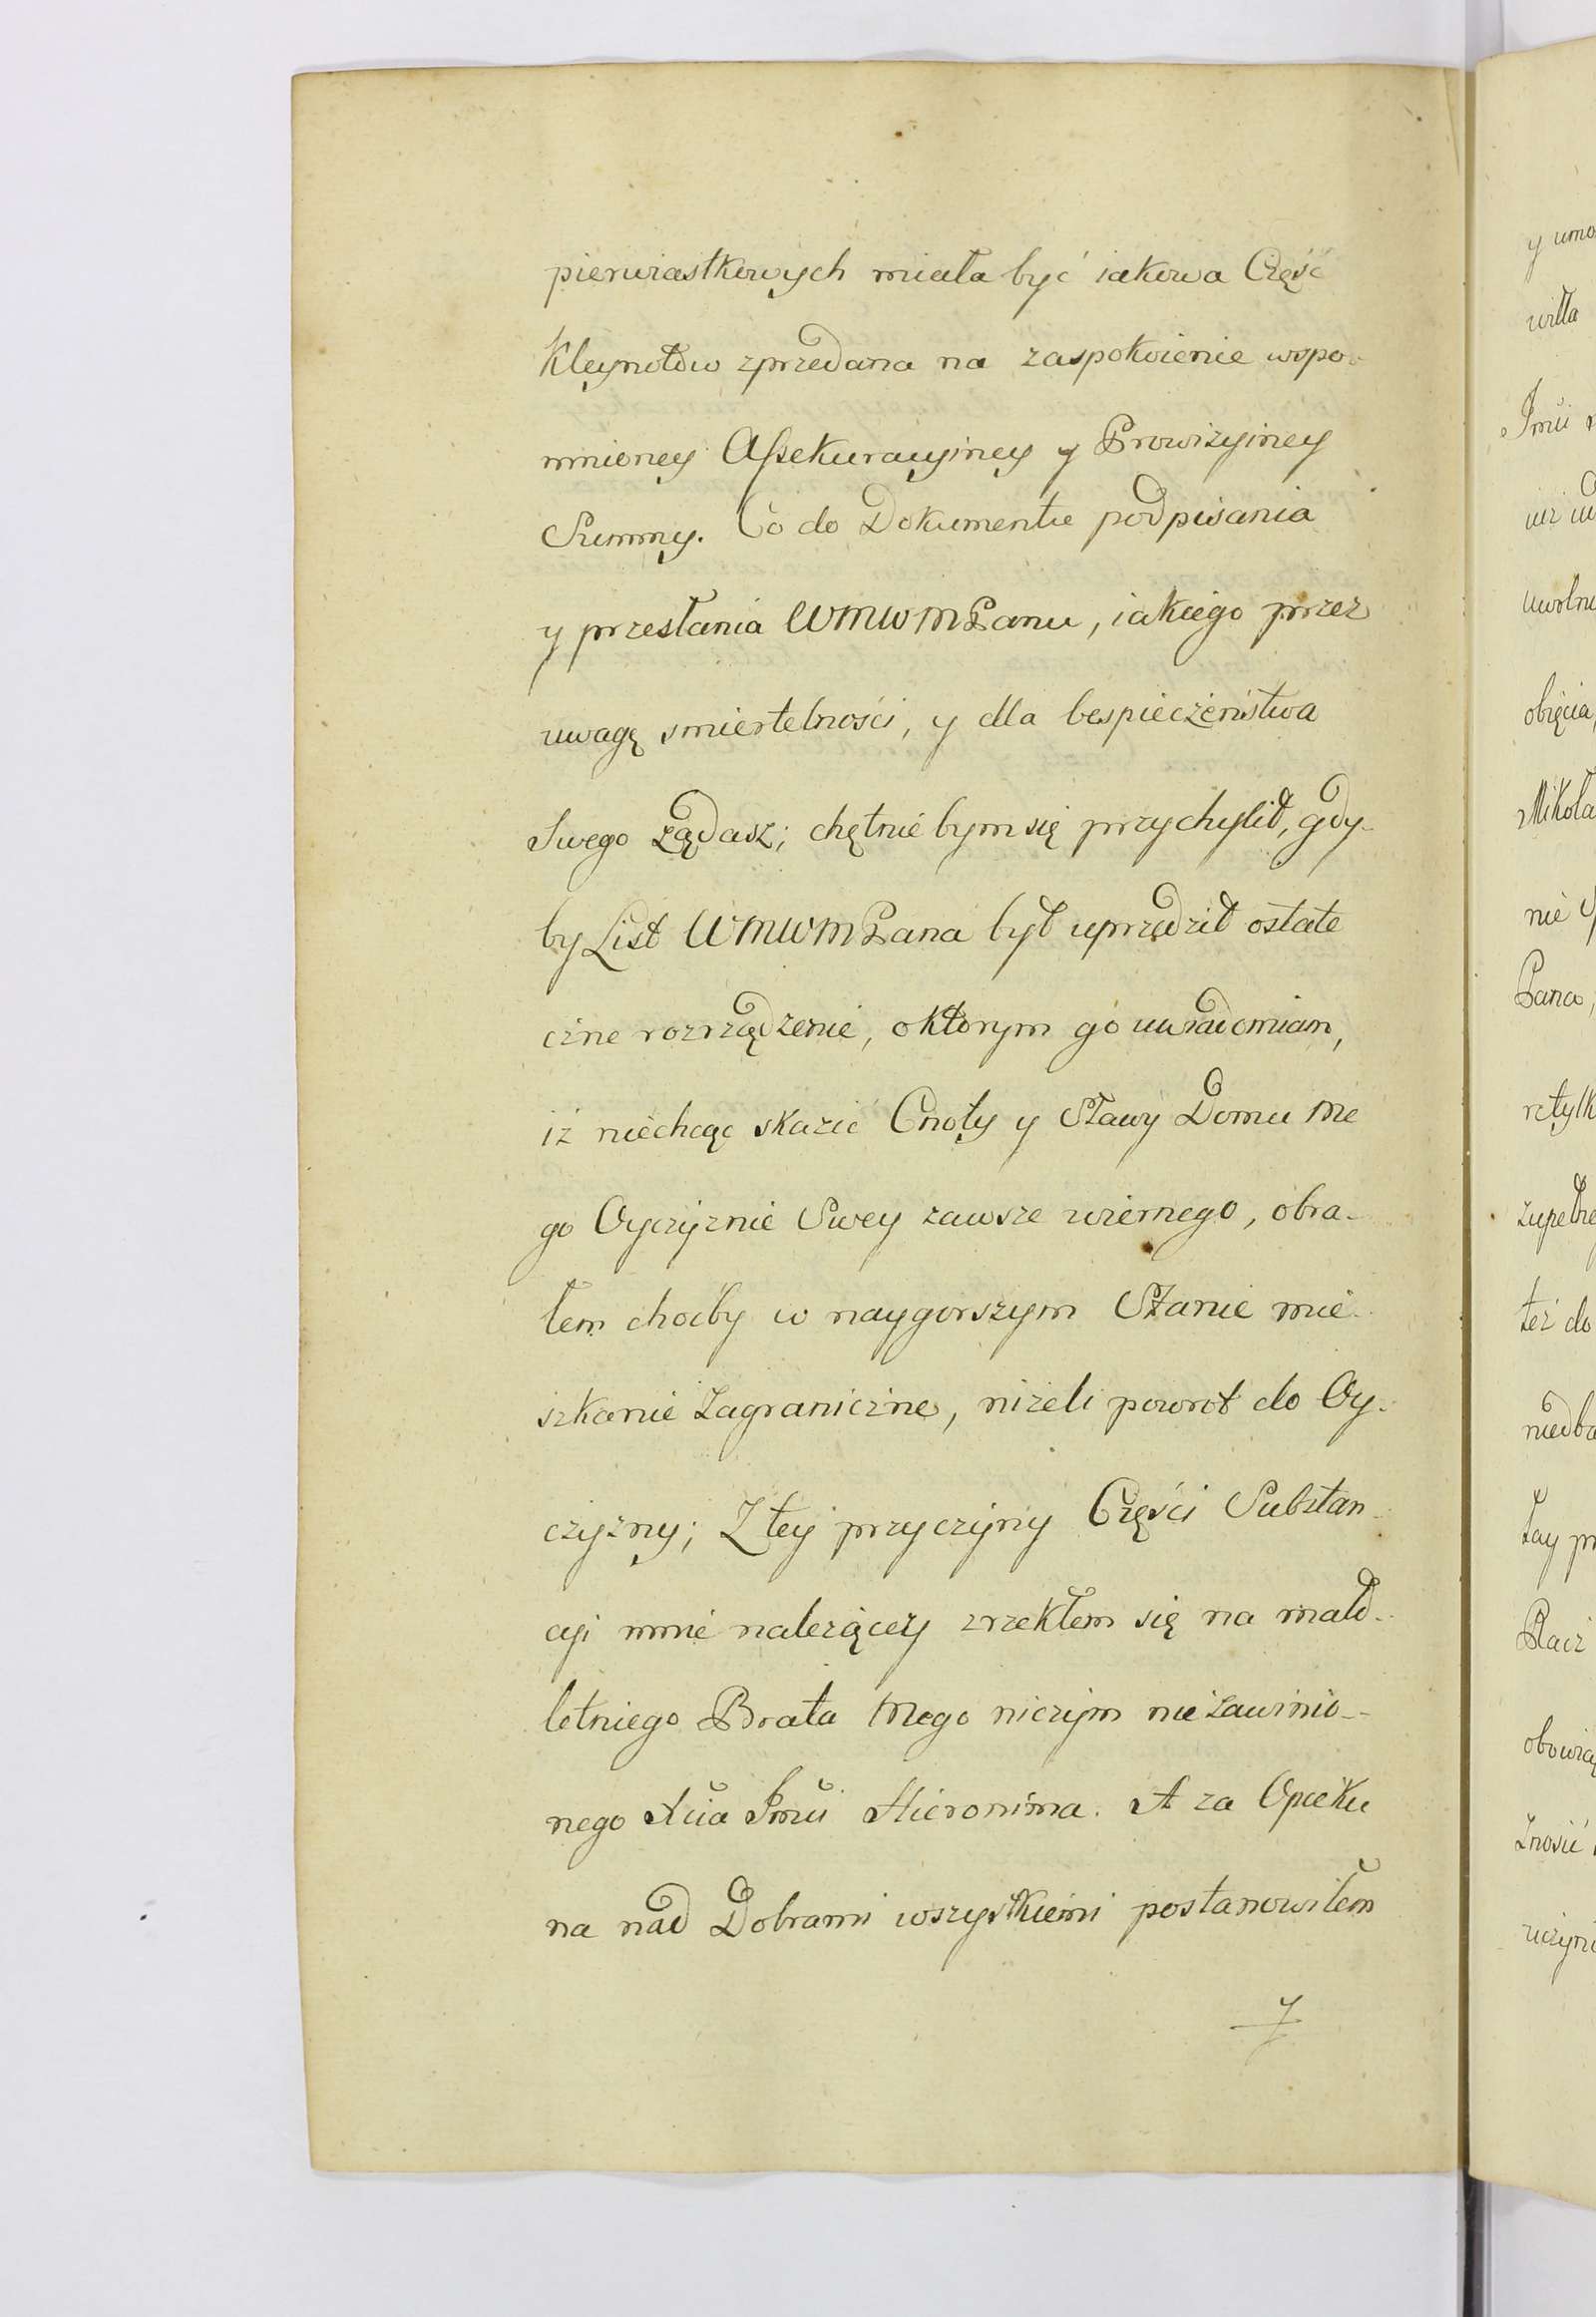 pierwiastkowych miała być iakowa Część
Kleynotów zprzedana na zaspokoienie wspo-
mnioney Assekuracyiney y Prowizyiney
Summy. Co do Dokumentu podpisania
y przesłania WMWMPanu, iakiego przez
uwagę smiertelności, y dla bespieczeństwa
Swego żądasz; chętnie bym się przychylił, gdy-
by List WMWMPana był uprzedził ostate
czne rozrządzenie, o którym go uwiadomiam,
iż niechcąc skazić Cnoty y Sławy Domu Me
go Oyczyznie Swey zawsze wiernego, obra-
łem choćby w naygorszym Stanie mie-
szkanie Zagraniczne, niżeli powrot do Oy-
czyzny; Z tey przyczyny Części Substan-
cyi mnie należącey zrzekłem się na mało-
letniego Brata Mego niczym nie zawinio-
nego Xcia Jmci Hieronima. A za Opieku
na nad Dobrami wszystkiemi postanowiłem
y
y umo
wiła
Jmci
iuz
uwolni
obięcia,
Mikoła
nie
Pana,
rztylk
zupełne
też do
niedba
Racz
obowią
Znosić
uczyni